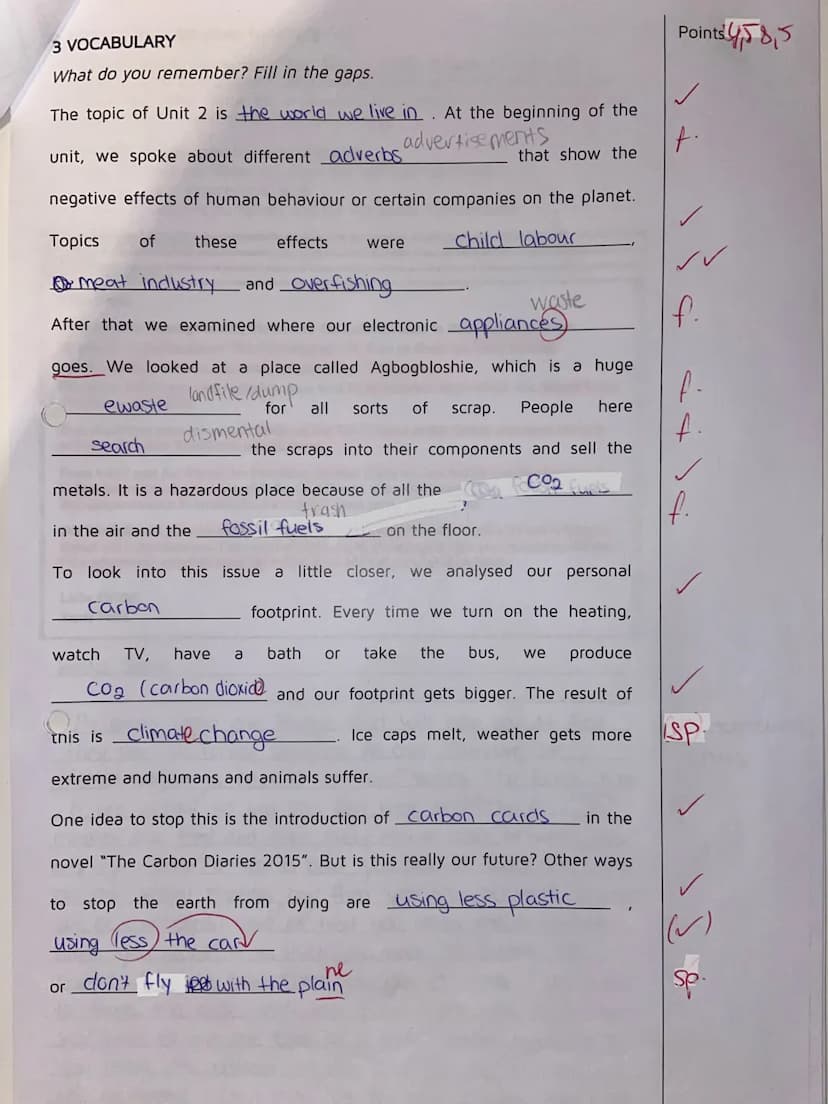 3 VOCABULARY
Points 4,5 8,5
What do you remember? Fill in the gaps.
The topic of Unit 2 is the world we live in . At the beginning of the ✓
advertisements
unit, we spoke about different adverbs that show the f.
negative effects of human behaviour or certain companies on the planet.
Topics of these effects were child labour , ✓
meat industry and overfishing . ✓✓
waste
After that we examined where our electronic appliances f.
goes. We looked at a place called Agbogbloshie, which is a huge
landfile/dump
ewaste for all sorts of scrap. People here f.
dismental
search the scraps into their components and sell the f.
metals. It is a hazardous place because of all the CO2 ✓
trash
in the air and the fossil fuels on the floor. f.
To look into this issue a little closer, we analysed our personal
carbon footprint. Every time we turn on the heating, ✓
watch TV, have a bath or take the bus, we produce
CO2 (carbon dioxid) and our footprint gets bigger. The result of ✓
this is climate change . Ice caps melt, weather gets more sp.
extreme and humans and animals suffer.
One idea to stop this is the introduction of carbon cards in the ✓
novel "The Carbon Diaries 2015". But is this really our future? Other ways
to stop the earth from dying are using less plastic , ✓
using less the car (✓)
ne
or don't fly with the plain sp.